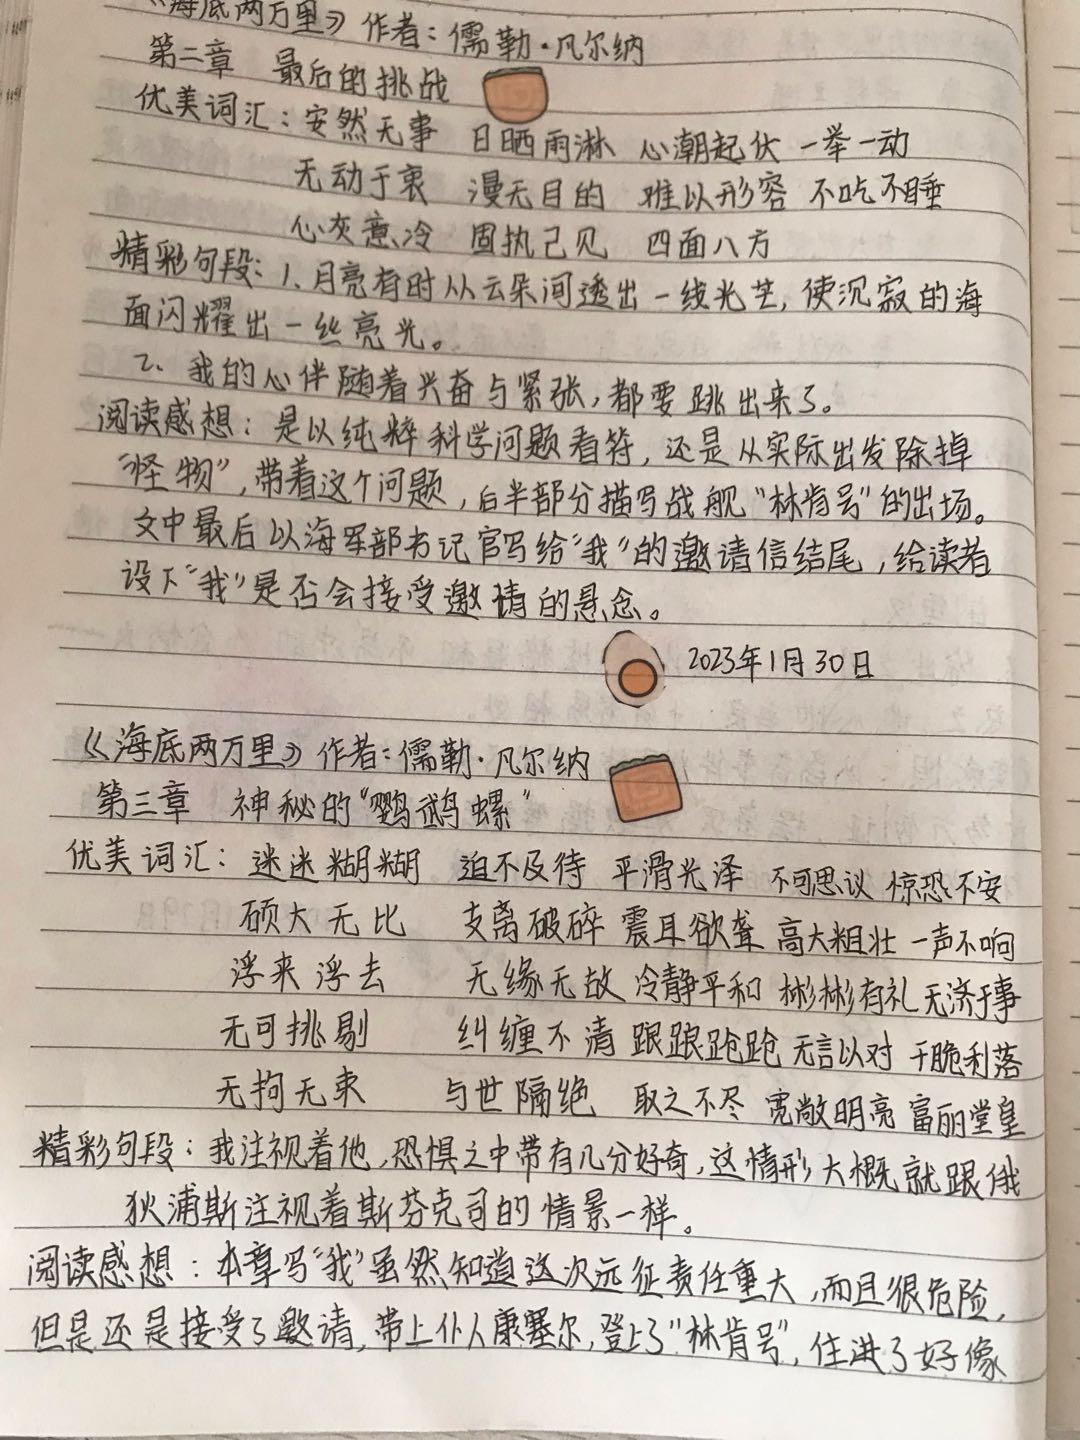 《海底两万里》作者：儒勒·凡尔纳
第二章 最后的挑战
优美词汇：安然无事 日晒雨淋 心潮起伏 一举一动
无动于衷 漫无目的 难以形容 不吃不睡
心灰意冷 固执己见 四面八方
精彩句段：1、月亮有时从云朵间透出一线光芒，使沉寂的海
面闪耀出一丝亮光。
2、我的心伴随着兴奋与紧张，都要跳出来了。
阅读感想：是以纯粹科学问题看待，还是从实际出发除掉
“怪物”，带着这个问题，后半部分描写战舰“林肯号”的出场。
文中最后以海军部书记官写给“我”的邀请信结尾，给读者
设下“我”是否会接受邀请的悬念。
2023年1月30日
《海底两万里》作者：儒勒·凡尔纳
第三章 神秘的“鹦鹉螺”
优美词汇：迷迷糊糊 迫不及待 平滑光泽 不可思议 惊恐不安
硕大无比 支离破碎 震耳欲聋 高大粗壮 一声不响
浮来浮去 无缘无故 冷静平和 彬彬有礼 无济于事
无可挑剔 纠缠不清 踉踉跄跄 无言以对 干脆利落
无拘无束 与世隔绝 取之不尽 宽敞明亮 富丽堂皇
精彩句段：我注视着他，恐惧之中带有几分好奇，这情形大概就跟俄
狄浦斯注视着斯芬克司的情景一样。
阅读感想：本章写“我”虽然知道这次远征责任重大，而且很危险，
但是还是接受了邀请，带上仆人康塞尔，登上了“林肯号”，住进了好像